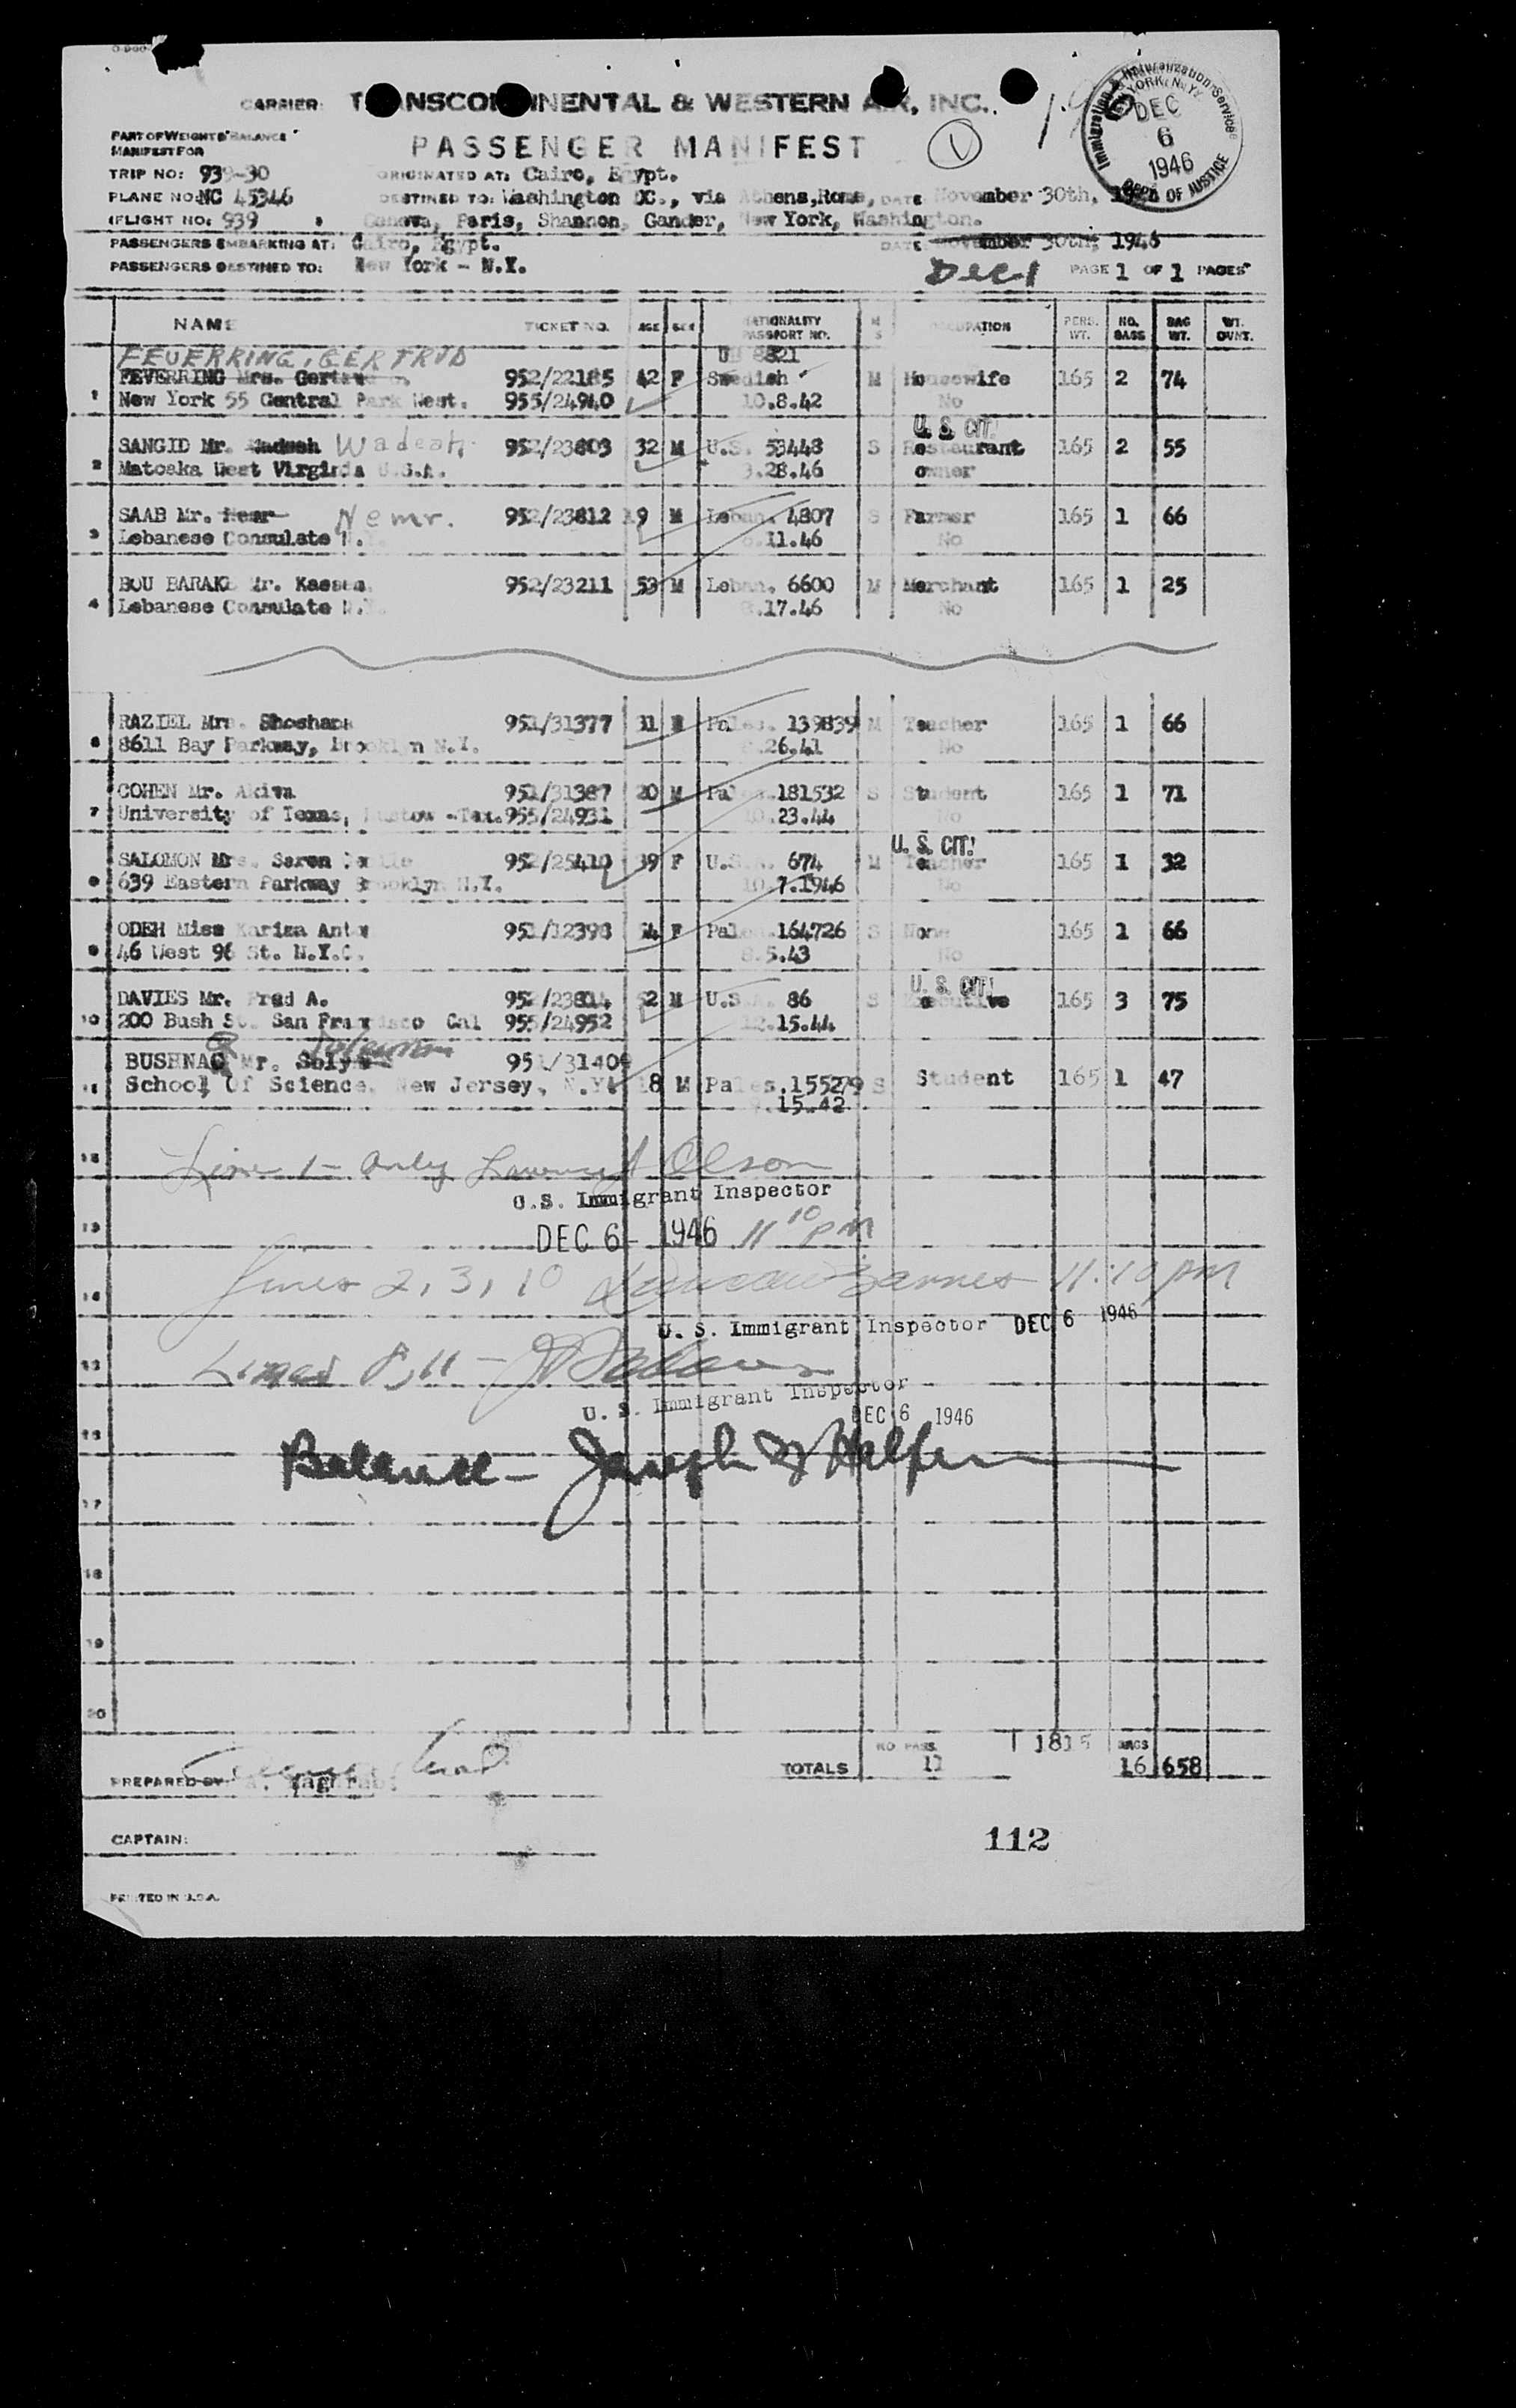 CARRIER: TRANSCONTINENTAL & WESTERN AIR, INC.
Immigration & Naturalization Service
NEW YORK, N.Y.
DEC
6
1946
DEPT. OF JUSTICE
PART OF WEIGHT & BALANCE
MANIFEST FOR
PASSENGER MANIFEST
1
TRIP NO: 939-30 ORIGINATED AT: Cairo, Egypt.
PLANE NO: NC 45346 DESTINED TO: Washington DC., via Athens, Rome, DATE November 30th, 1946
FLIGHT NO: 939 Geneva, Paris, Shannon, Gander, New York, Washington.
PASSENGERS EMBARKING AT: Cairo, Egypt. DATE November 30th, 1946
PASSENGERS DESTINED TO: New York - N.Y. Dec 1 PAGE 1 OF 1 PAGES
NAME TICKET NO. AGE SEX NATIONALITY PASSPORT NO. M S OCCUPATION PERS. WT. NO. BAGS BAG WT. WT. OVNT.
FEUERRING, GERTRUD 8821
1 FEVERRING Mrs. 952/22185 42 F Swedish M Housewife 165 2 74
New York 55 Central Park West. 955/24940 10.8.42 No
U. S. CIT.
2 SANGID Mr. Wadeah 952/23803 32 M U.S. 53448 S Restaurant 165 2 55
Matoaka West Virginia U.S.A. 3.28.46 owner
3 SAAB Mr. Nemr. 952/23812 19 M Leban. 4807 S Farmer 165 1 66
Lebanese Consulate N.Y. .11.46 No
4 BOU BARAKE Mr. Kassem 952/23211 53 M Leban. 6600 M Merchant 165 1 25
Lebanese Consulate N.Y. .17.46 No
6 RAZIEL Mrs. Shoshana 951/31377 31 Pales. 139839 M Teacher 165 1 66
8611 Bay Parkway, Brooklyn N.Y. .26.41 No
7 COHEN Mr. Akiva 951/31387 20 M Pales.181532 S Student 165 1 71
University of Texas, -Tex. 955/24931 10.23.44 No
U. S. CIT.
8 SALOMON Mrs. Saron 952/25410 39 F U.S.A. 674 M Teacher 165 1 32
639 Eastern Parkway Brooklyn N.Y. 10.7.1946 No
9 ODEH Miss Karima Anton 951/12398 F Pales.164726 S None 165 1 66
46 West 96 St. N.Y.C. .5.43 No
U. S. CIT.
10 DAVIES Mr. Fred A. 952/23814 52 M U.S.A. 86 S Executive 165 3 75
200 Bush St. San Francisco Cal 955/24952 12.15.44
11 BUSHNAQ Mr. 951/31409
School Of Science. New Jersey, N.Y. 18 M Pales.155279 S Student 165 1 47
.15.42
12 Line 1 - only Olson
U.S. Immigrant Inspector
13 DEC 6 - 1946 11 10 PM
14 Lines 2, 3, 10 Barnes 11:10 PM
U. S. Immigrant Inspector DEC 6 1946
15 Lines 8, 11 -
U. S. Immigrant Inspector
DEC 6 1946
Balance - Joseph Halpern
17
18
19
20
NO PASS. 1815 BAGS
TOTALS 11 16 658
PREPARED BY
112
CAPTAIN:
PRINTED IN U.S.A.